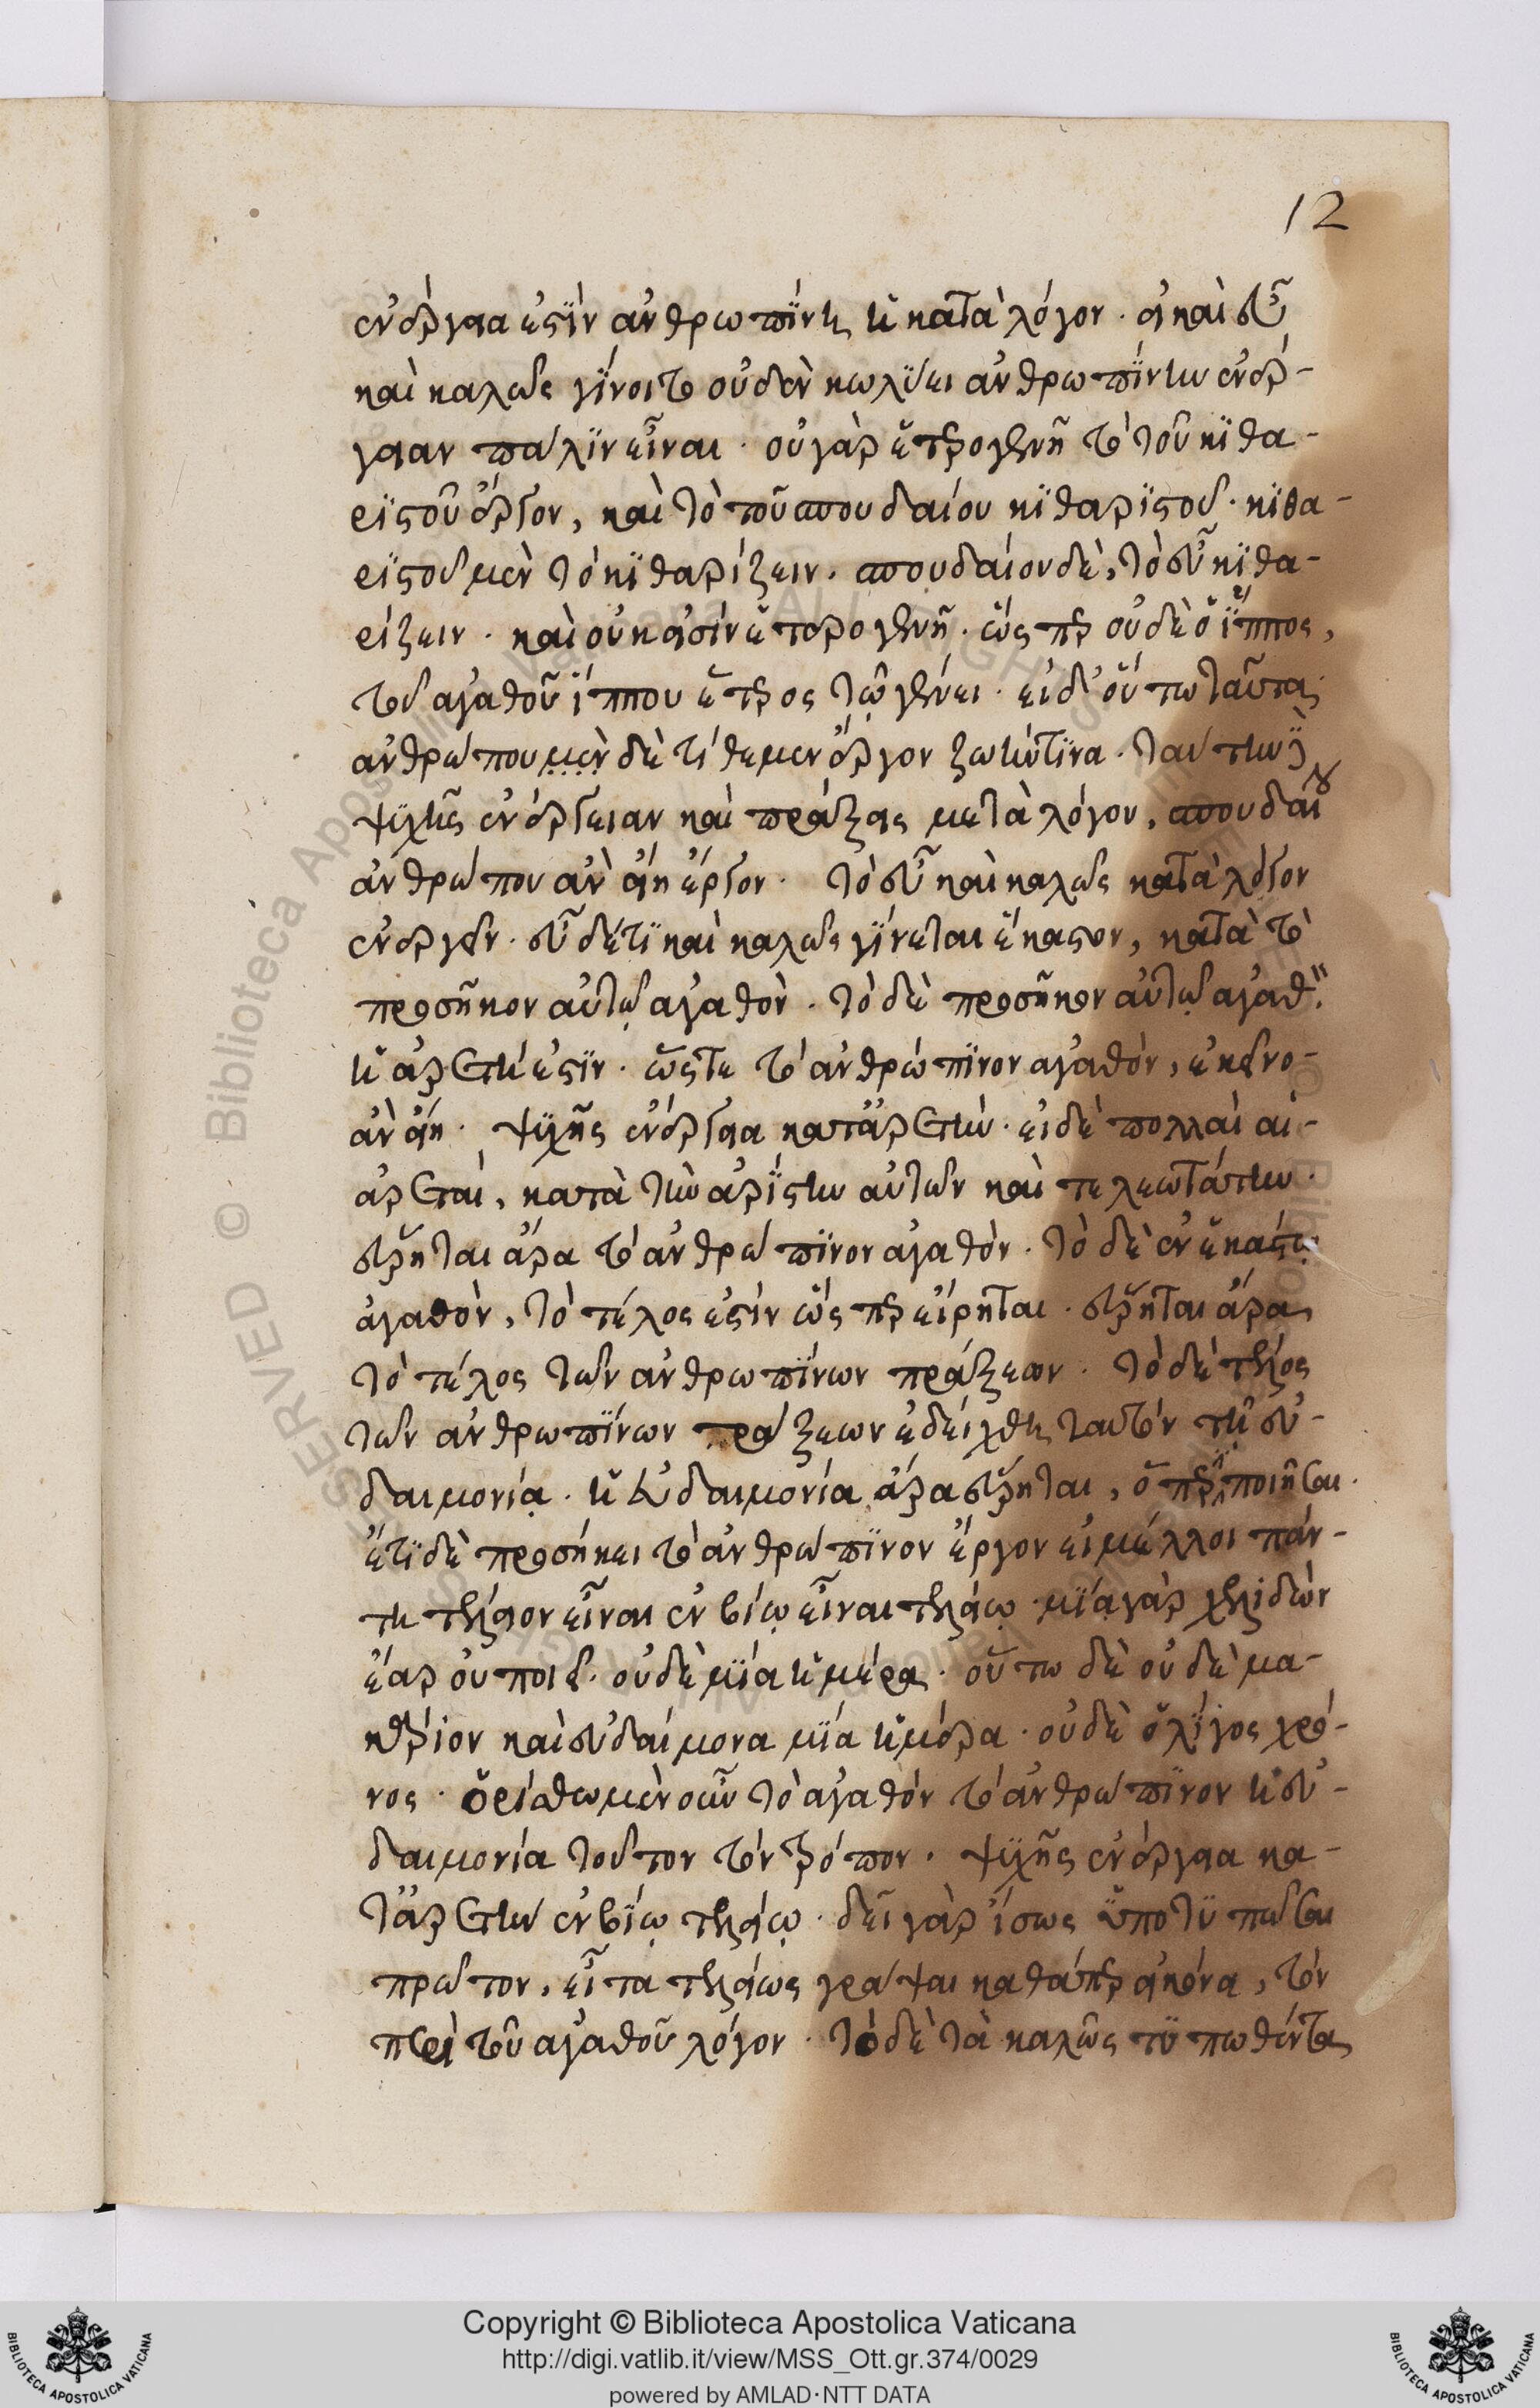 12
ἐνέργεια ἐστὶν ἀνθρωπίνη ἡ κατὰ λόγον. εἰ καὶ εὖ
καὶ καλῶς γίνοιτο οὐδὲν κωλύει ἀνθρωπίνην ἐνέρ-
γειαν πάλιν εἶναι. οὐ γὰρ ἑτερογενῆ τὸ τοῦ κιθα-
ριστοῦ ἔργον, καὶ τὸ τοῦ σπουδαίου κιθαριστοῦ. κιθα-
ριστοῦ μὲν τὸ κιθαρίζειν. σπουδαίου δὲ, τὸ εὖ κιθα-
ρίζειν. καὶ οὐκ εἰσὶν ἑτερογενῆ. ὥσπερ οὐδὲ ὁ ἵππος,
τοῦ ἀγαθοῦ ἵππου ἕτερος τῷ γένει. εἰ δ' οὕτω ταῦτα,
ἀνθρώπου μὲν δὲ τίθεμεν ἔργον ζωήν τινα. ταύτην
ψυχῆς ἐνέργειαν καὶ πράξεις μετὰ λόγου, σπουδαίου
ἀνθρώπου ἂν εἴη ἔργον. τὸ εὖ καὶ καλῶς κατὰ λόγον
ἐνεργεῖν. εὖ δέ τι καὶ καλῶς γίνεται ἕκαστον, κατὰ τὸ
προσῆκον αὐτῷ ἀγαθόν. τὸ δὲ προσῆκον αὐτῷ ἀγαθὸν
ἡ ἀρετή ἐστιν. ὥστε τὸ ἀνθρώπινον ἀγαθὸν, ἐκεῖνο
ἂν εἴη. ψυχῆς ἐνέργεια κατ' ἀρετήν. εἰ δὲ πολλαὶ αἱ
ἀρεταὶ, κατὰ τὴν ἀρίστην αὐτῶν καὶ τελεωτάτην.
εὕρηται ἄρα τὸ ἀνθρώπινον ἀγαθόν. τὸ δὲ ἐν ἑκάστῳ
ἀγαθὸν, τὸ τέλος ἐστὶν ὥσπερ εἴρηται. εὕρηται ἄρα
τὸ τέλος τῶν ἀνθρωπίνων πράξεων. τὸ δὲ τέλος
τῶν ἀνθρωπίνων πράξεων ἐδείχθη ταυτὸν τῇ εὐ-
δαιμονίᾳ. ἡ εὐδαιμονία ἄρα εὕρηται, ὅπερ ποιῆσαι.
ἔτι δὲ προσήκει τὸ ἀνθρώπινον ἔργον εἰ μέλλοι πάν-
τη τέλειον εἶναι ἐν βίῳ εἶναι τελείῳ. μία γὰρ χελιδὼν
ἔαρ οὐ ποιεῖ. οὐδὲ μία ἡμέρα. οὕτω δὲ οὐδὲ μα-
κάριον καὶ εὐδαίμονα μία ἡμέρα. οὐδὲ ὀλίγος χρό-
νος. ὁρίσθω μὲν οὖν τὸ ἀγαθὸν τὸ ἀνθρώπινον ἡ εὐ-
δαιμονία τοῦτον τὸν τρόπον. ψυχῆς ἐνέργεια κα-
τ' ἀρετὴν ἐν βίῳ τελείῳ. δεῖ γὰρ ἴσως ὑποτυπῶσαι
πρῶτον, εἶτα τελείως γράψαι καθάπερ εἰκόνα, τὸν
περὶ τοῦ ἀγαθοῦ λόγον. τὸ δὲ τὰ καλῶς τυπωθέντα
Copyright © Biblioteca Apostolica Vaticana
http://digi.vatlib.it/view/MSS_Ott.gr.374/0029
powered by AMLAD·NTT DATA
BIBLIOTECA APOSTOLICA VATICANA
BIBLIOTECA APOSTOLICA VATICANA